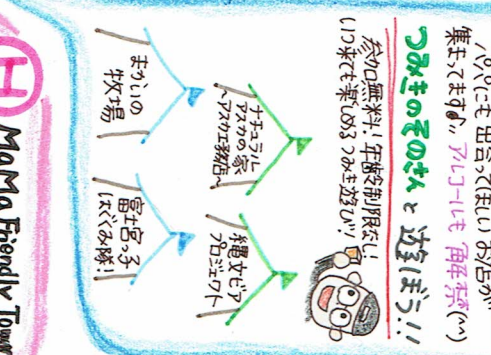 パパにも出会ってほしいお店が
集まってます♪ アルコールも解禁(^^)
つみきのそのさんと遊ぼう!!
参加無料!年齢制限なし!
いつ来ても楽しめるつみき遊び!
ナチュラル
アスカの家
〜アスカ工務店〜
縄文ピア
プロジェクト
まかいの
牧場
富士宮っ子
はぐくみ隊!
H MaMa Friendly Town